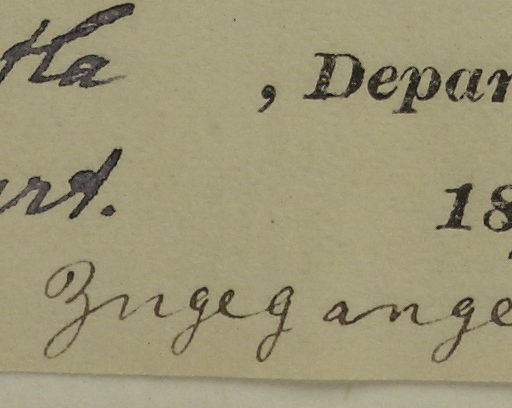 tla , Depar
urt. 18
Zugegange